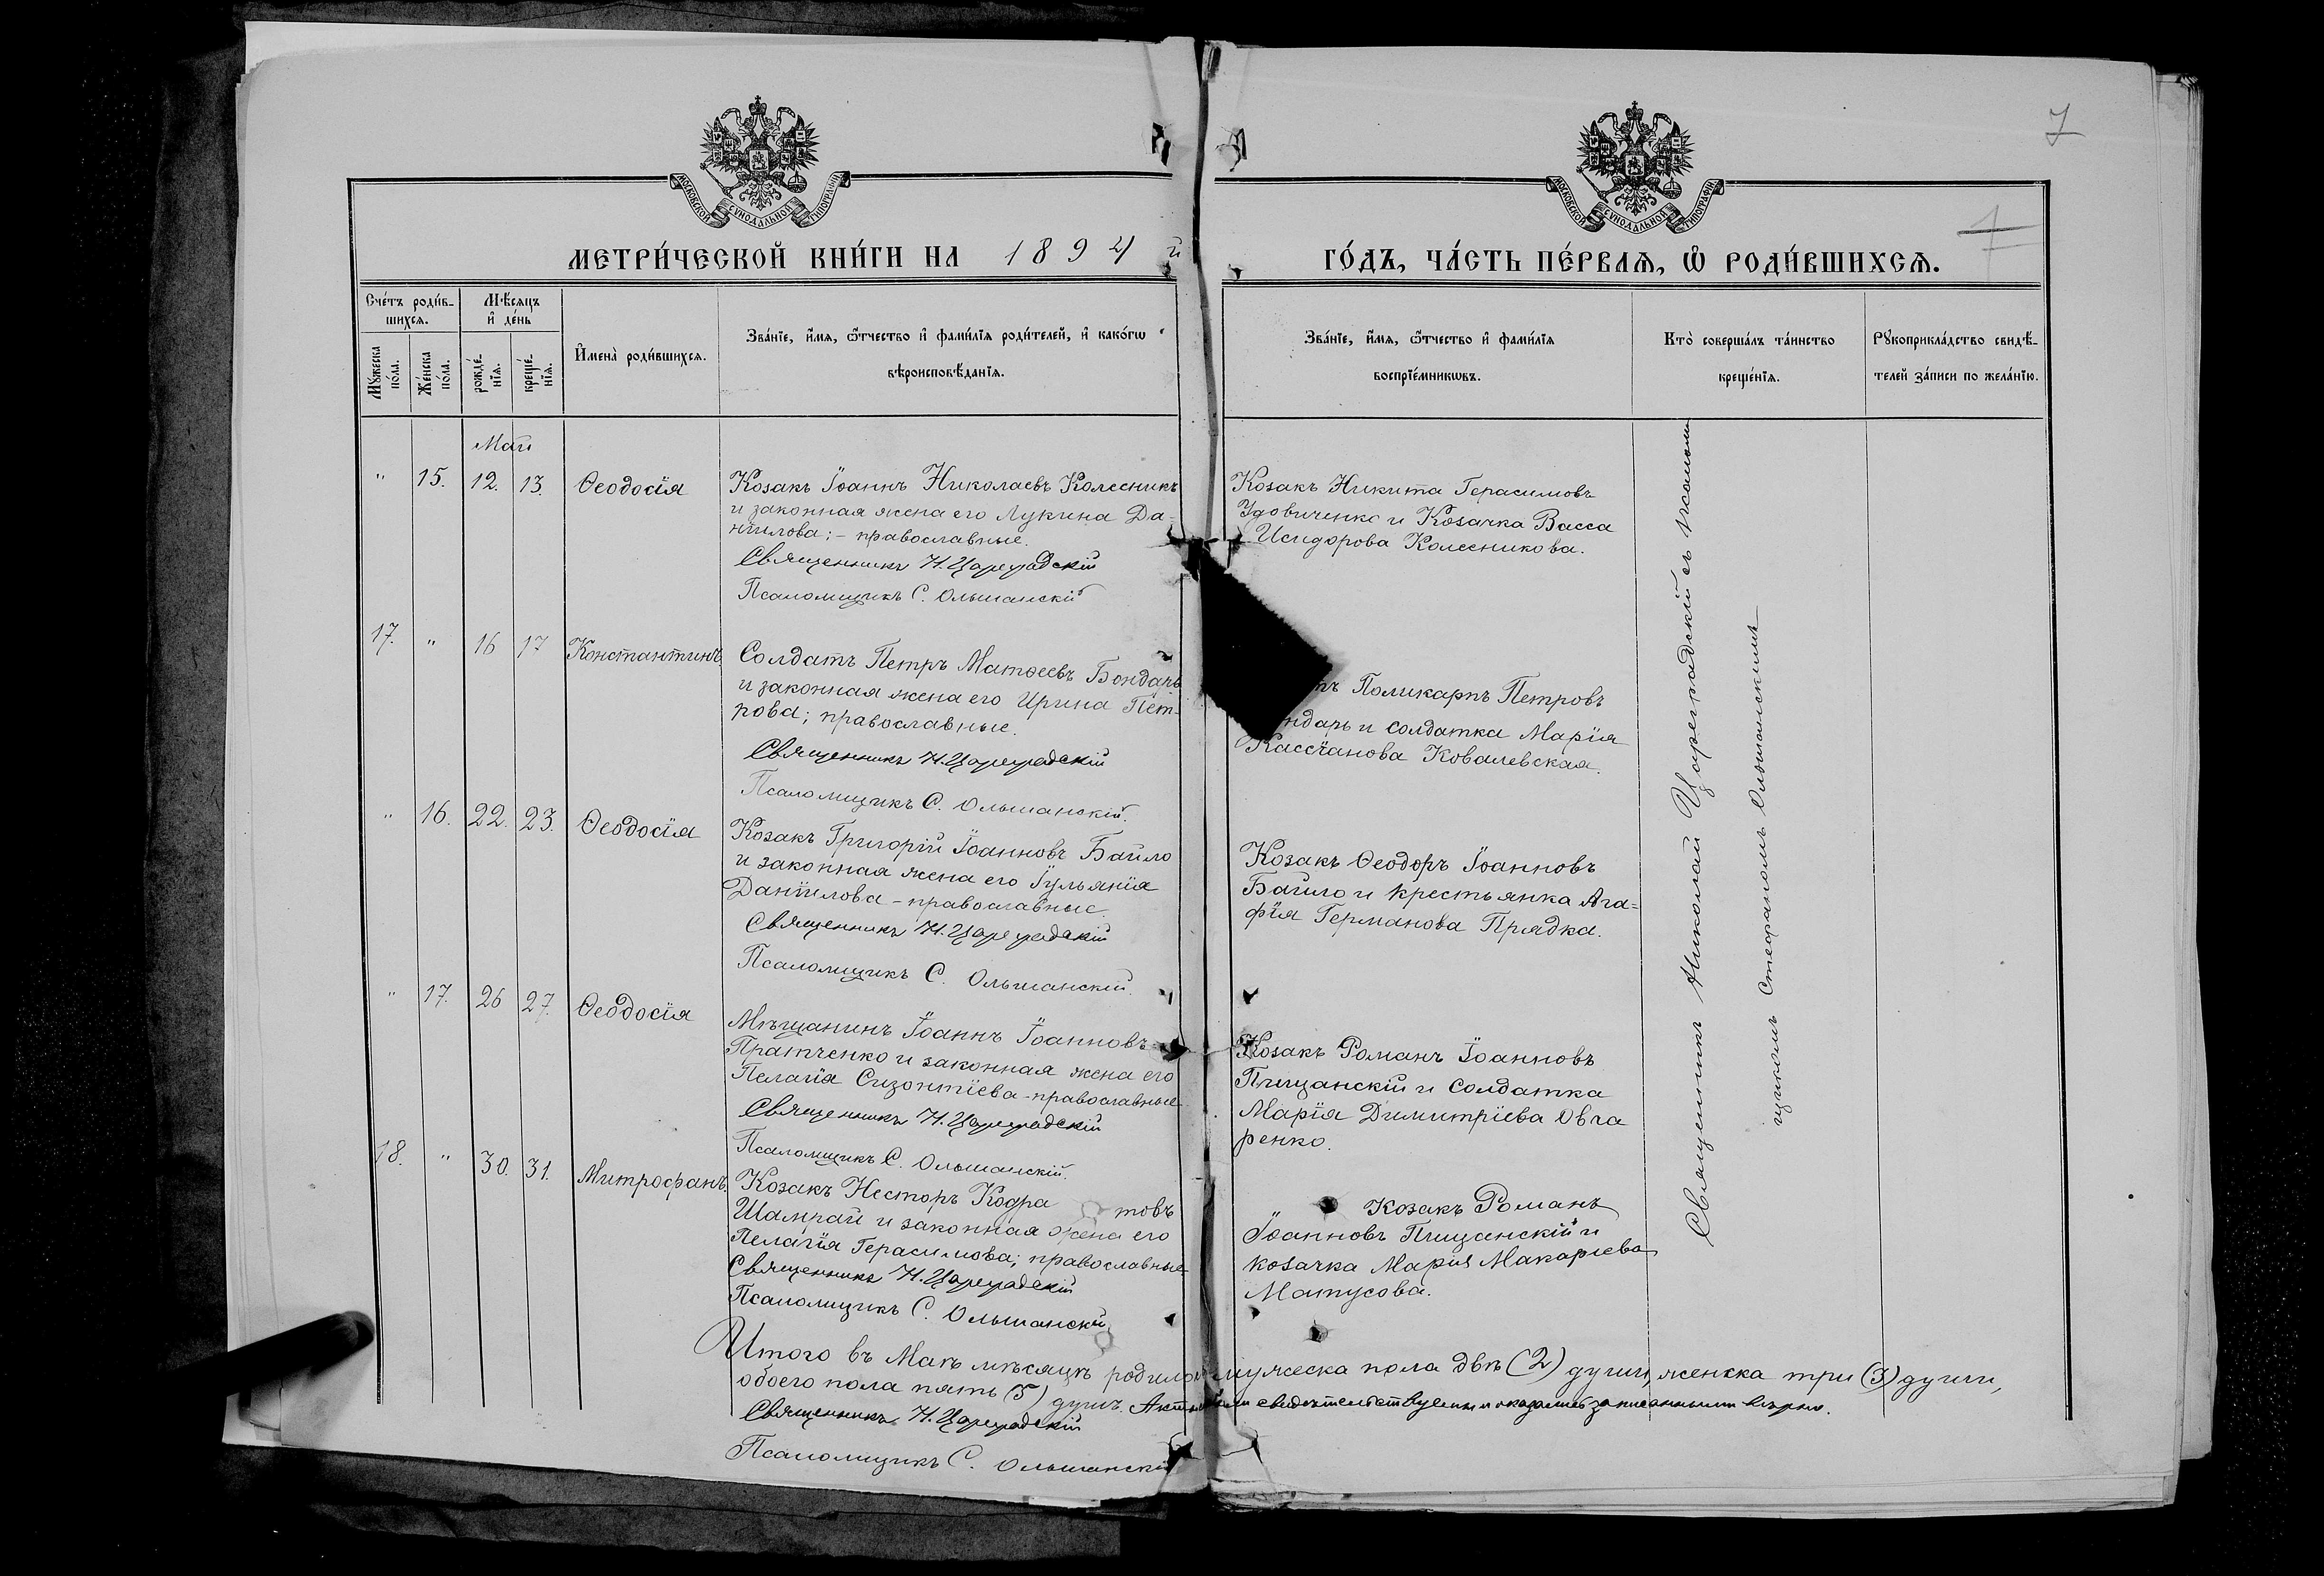 7
МОСКОВСКОЙ СУНОДАЛЬНОЙ ТИПОГРАФІИ
МОСКОВСКОЙ СУНОДАЛЬНОЙ ТИПОГРАФІИ
МЕТРИ́ЧЕСКОЙ КНИ́ГИ НА 1894 й
ГО́ДЪ, ЧА́СТЬ ПЕ́РВАѦ, Ѡ РОДИ́ВШИХСѦ.
Сче́тъ роди́в-
шихсѧ.
Мѣ́сяцъ
и҆ де́нь
Мꙋ́жеска
по́ла.
Же́нска
по́ла.
рожде́-
нїѧ.
креще́-
нїѧ.
И҆мена̀ роди́вшихсѧ.
Зва́нїе, и҆́мѧ, ѻ҆́тчество и҆ фами́лїѧ роди́телей, и҆ како́гѡ
вѣроисповѣ́данїѧ.
Зва́нїе, и҆́мѧ, ѻ҆́тчество и҆ фами́лїѧ
воспрїе́мникѡвъ.
Кто̀ соверша́лъ та́инство
креще́нїѧ.
Рꙋкоприкла́дство свидѣ́-
телей за́писи по жела́нїю.
Май
" 15. 12. 13. Ѳеодосія
Козакъ Іоаннъ Николаевъ Колесникъ
и законная жена его Лукина Да-
ніилова; - православные.
Священникъ Н. Цареградскій
Псаломщикъ С. Ольшанскій
Козакъ Никита Герасимовъ
Удовиченко и Козачка Васса
Исидорова Колесникова.
17. " 16 17 Константинъ
Солдатъ Петръ Матѳеевъ Бондарь
и законная жена его Ирина Пет-
рова; православные.
Священникъ Н. Цареградскій
Псаломщикъ С. Ольшанскій.
тъ Поликарпъ Петровъ
ндарь и солдатка Марія
Кассіанова Ковалевская.
" 16. 22. 23. Ѳеодосія
Козакъ Григорій Іоанновъ Байло
и законная жена его Іульянія
Даніилова - православные.
Священникъ Н. Цареградскій
Псаломщикъ С. Ольшанскій.
Козакъ Ѳеодоръ Іоанновъ
Байло и крестьянка Ага=
фія Германова Прядка.
" 17. 26 27. Ѳеодосія
Мѣщанинъ Іоаннъ Іоанновъ
Пратченко и законная жена его
Пелагія Сизонтіева - православные
Священникъ Н. Цареградскій
Псаломщикъ С. Ольшанскій.
Козакъ Романъ Іоанновъ
Пищанскій и солдатка
Марія Димитріева Овча
ренко.
18. " 30. 31. Митрофанъ.
Козакъ Несторъ Кодра товъ
Шамрай и законная жена его
Пелагія Герасимова; православные
Священникъ Н. Цареградскій
Псаломщикъ С. Ольшанскій
Козакъ Романъ
Іоанновъ Пищанскій и
козачка Марія Макаріева
Матусова.
Священникъ Николай Цареградскій съ псалом
щикомъ Стефаномъ Ольшанскимъ
Итого въ Маѣ мѣсяцѣ родилось мужеска пола двѣ (2) души, женска три (3) души,
обоего пола пять (5) душъ. свидѣтельствуемы и оказались записанными вѣрно.
Священникъ Н. Цареградскій
Псаломщикъ С. Ольшанскій